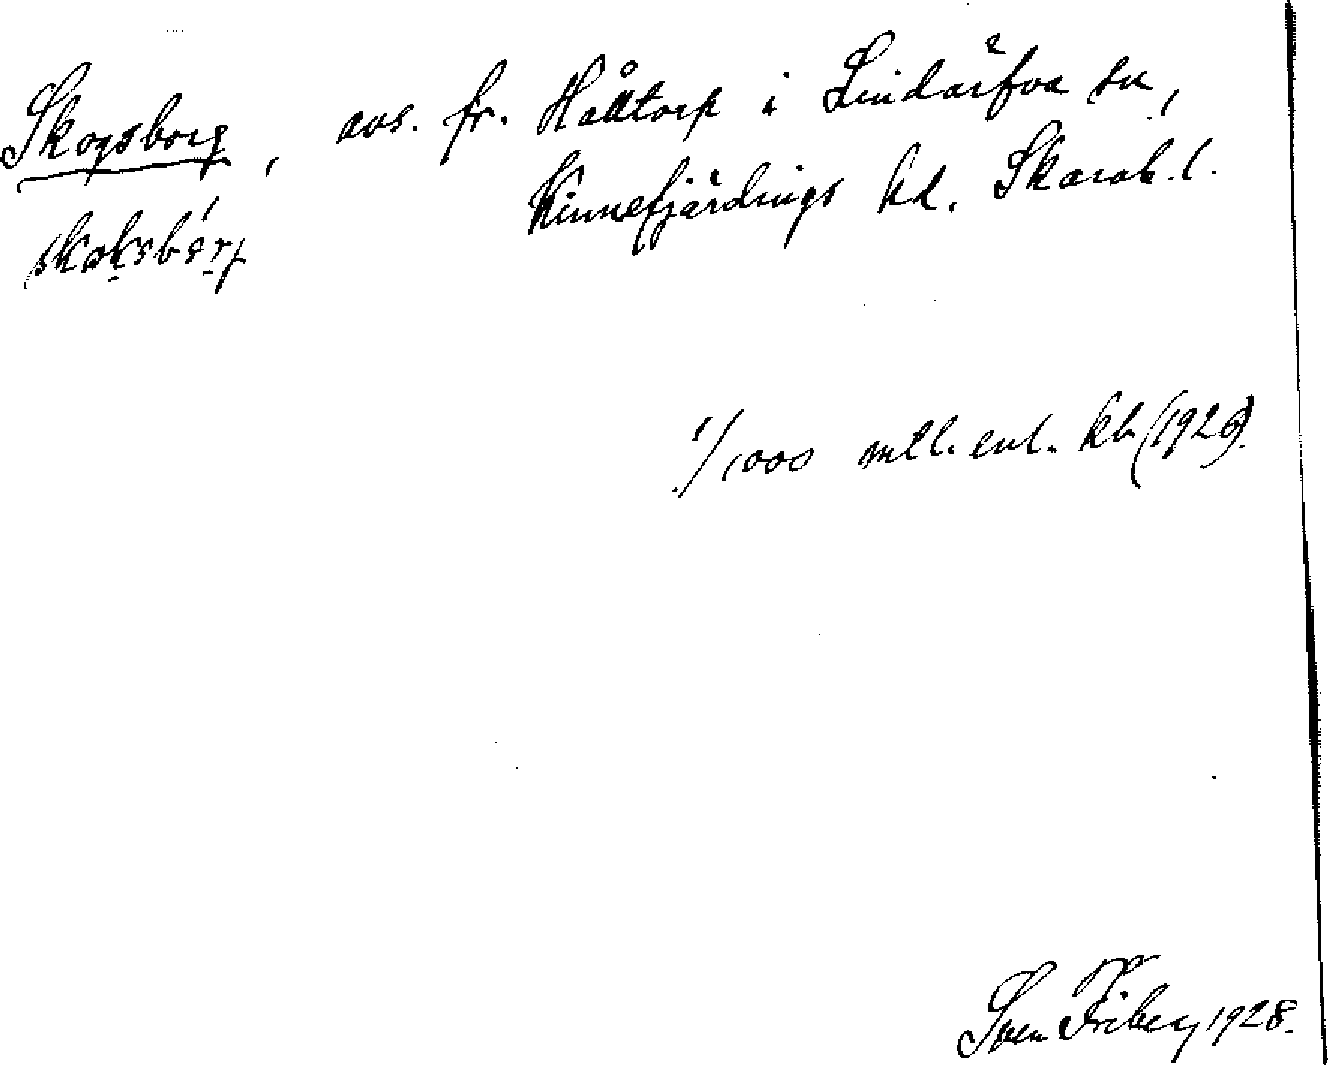 Skogsborg, avs. fr. Hålltorp i Lindärfva sn,
Kinnefjärdings hd. Skarab. l.
skoksbórj
1/1000 mtl. enl. kb (1926).
Sven Friberg 1928.